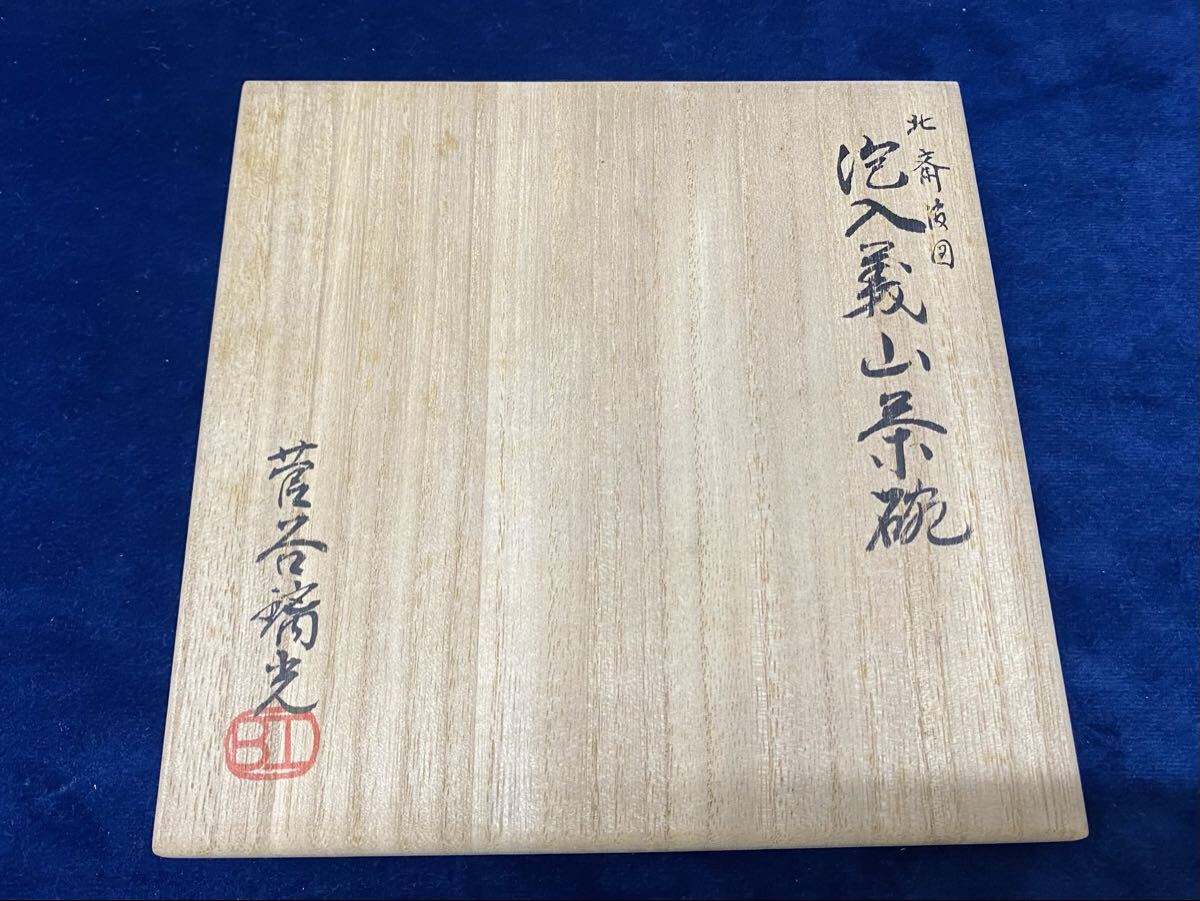 北斎波図
泡入義山茶碗
菅谷璃光